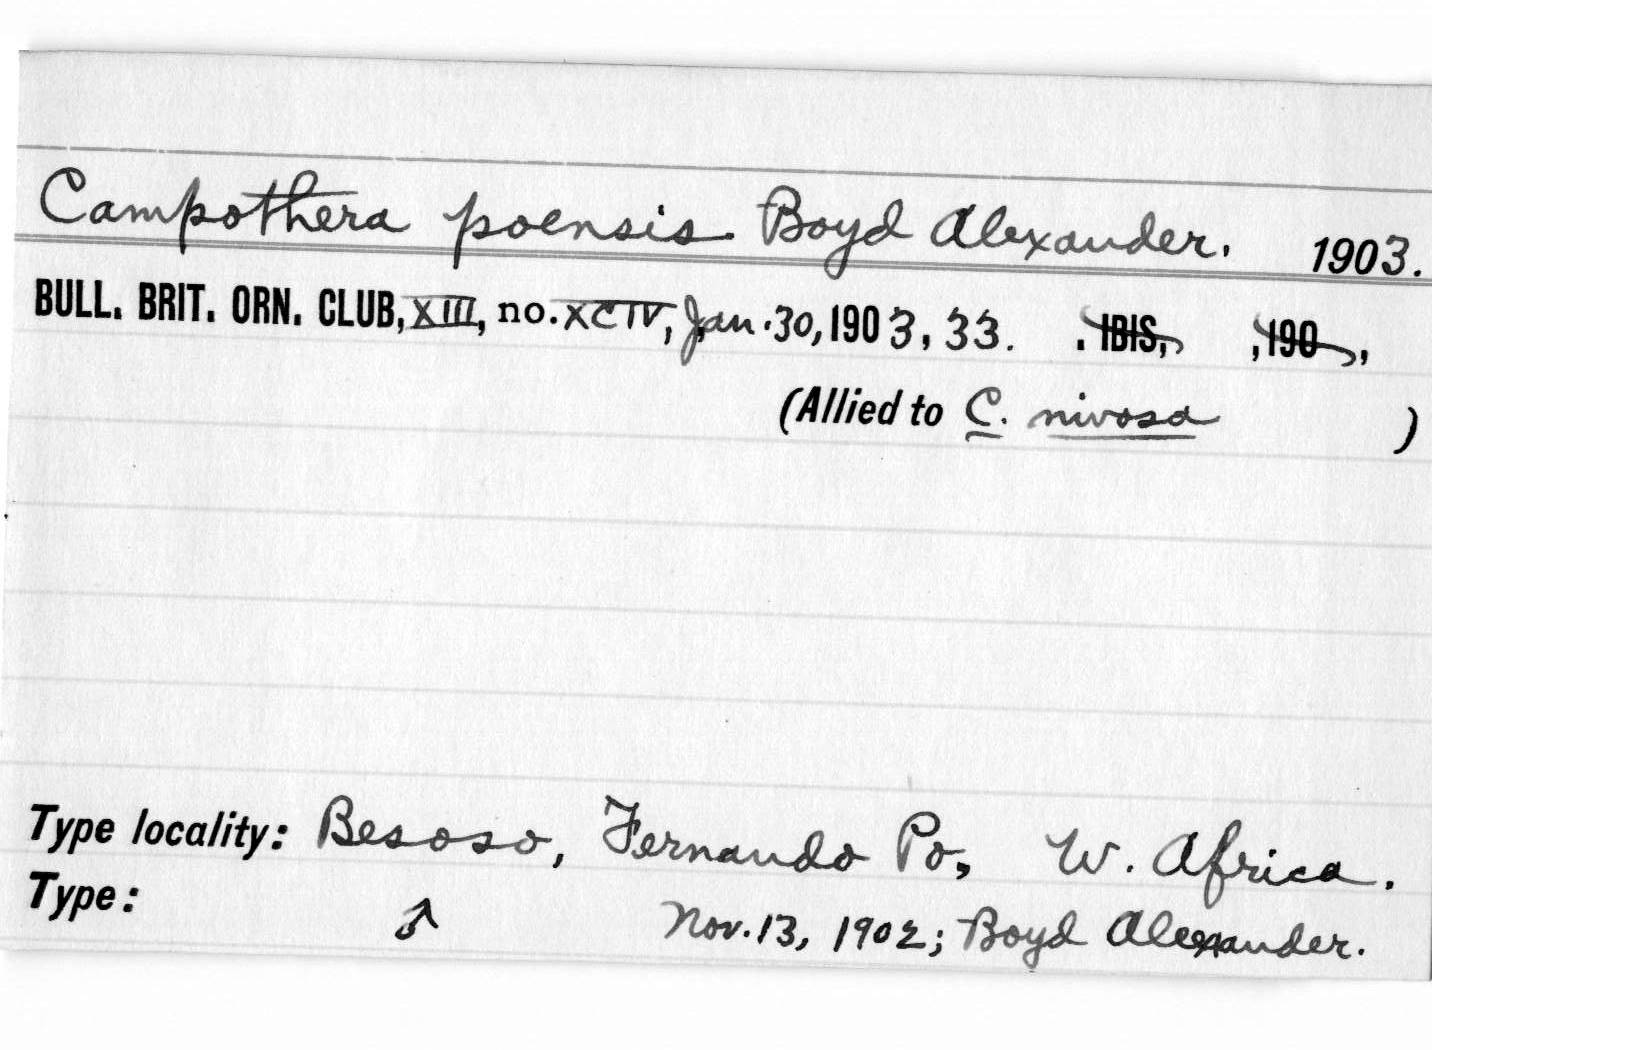 Campothera poensis Boyd Alexander. 1903.
BULL. BRIT. ORN. CLUB, XIII, no. XCIV, Jan. 30, 1903, 33. . IBIS, , 190 ,
(Allied to C. nivosa )
Type locality: Besoso, Fernando Po, W. Africa.
Type: ♂ Nov. 13, 1902; Boyd Alexander.